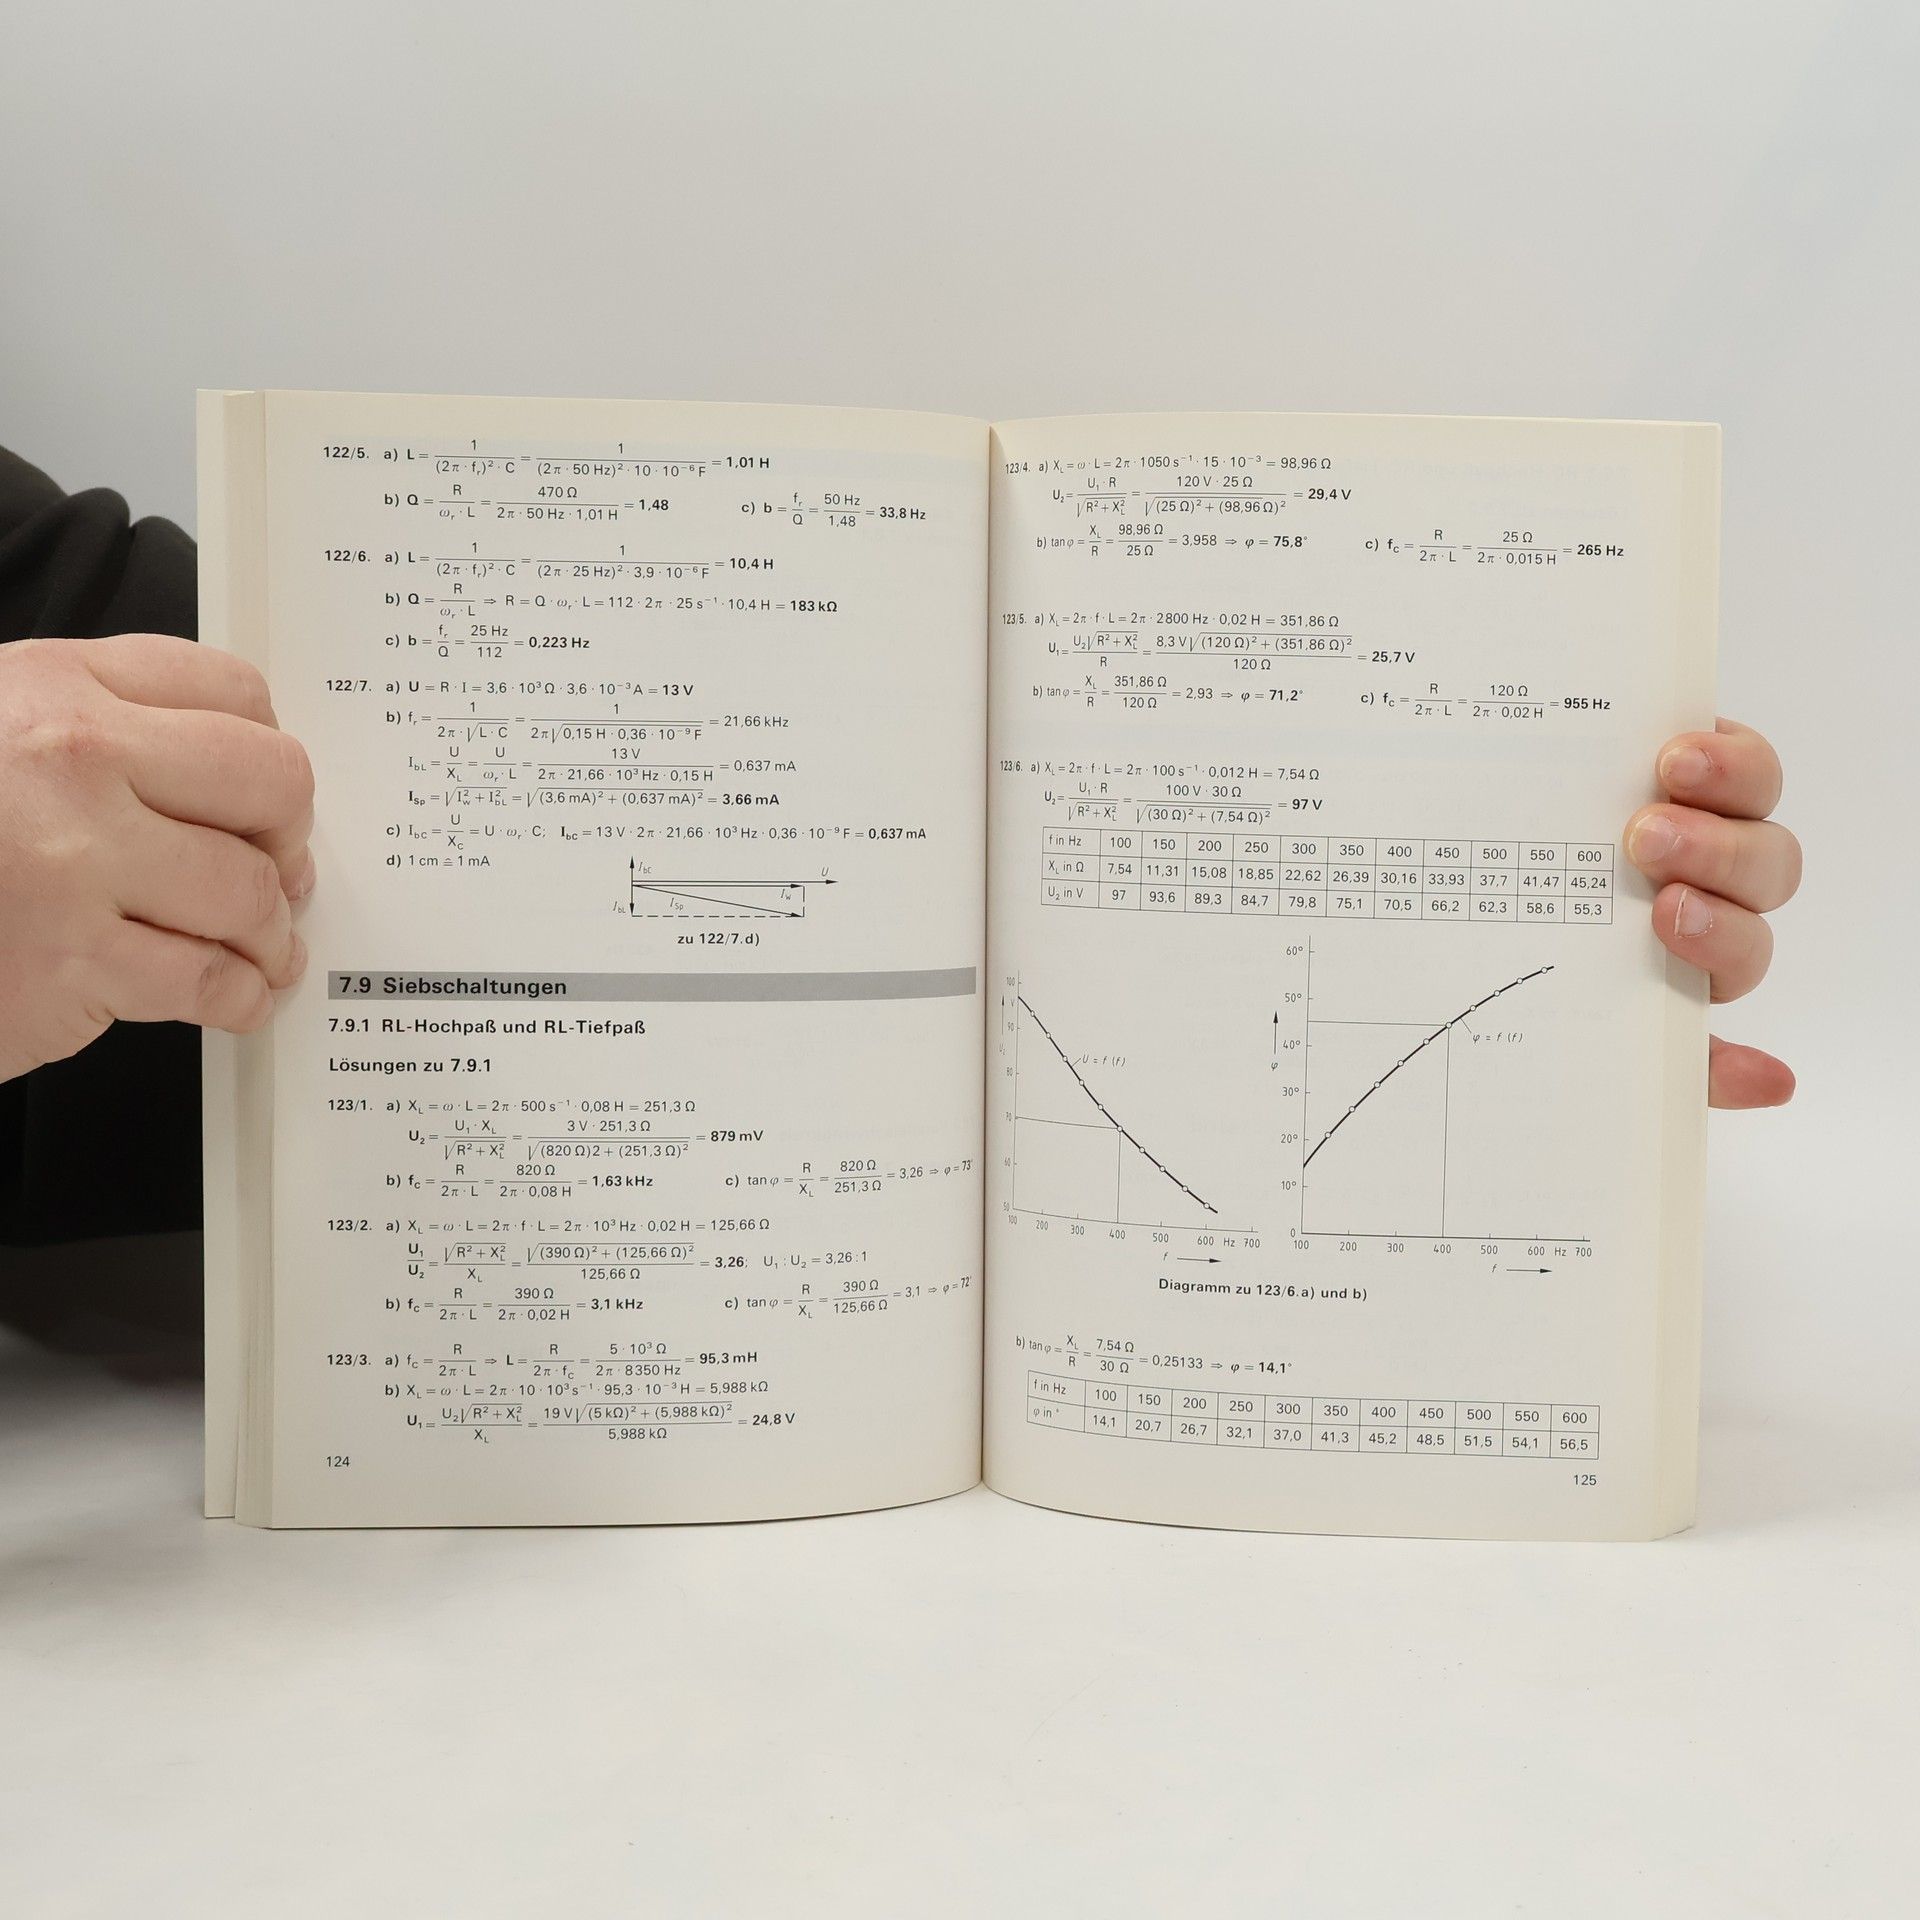 122/5. a) L = 1 / ((2π · fᵣ)² · C) = 1 / ((2π · 50 Hz)² · 10 · 10⁻⁶ F) = 1,01 H
b) Q = R / (ωᵣ · L) = 470 Ω / (2π · 50 Hz · 1,01 H) = 1,48 c) b = fᵣ / Q = 50 Hz / 1,48 = 33,8 Hz
122/6. a) L = 1 / ((2π · fᵣ)² · C) = 1 / ((2π · 25 Hz)² · 3,9 · 10⁻⁶ F) = 10,4 H
b) Q = R / (ωᵣ · L) ⇒ R = Q · ωᵣ · L = 112 · 2π · 25 s⁻¹ · 10,4 H = 183 kΩ
c) b = fᵣ / Q = 25 Hz / 112 = 0,223 Hz
122/7. a) U = R · I = 3,6 · 10³ Ω · 3,6 · 10⁻³ A = 13 V
b) fᵣ = 1 / (2π · √(L · C)) = 1 / (2π√(0,15 H · 0,36 · 10⁻⁹ F)) = 21,66 kHz
I_bL = U / X_L = U / (ωᵣ · L) = 13 V / (2π · 21,66 · 10³ Hz · 0,15 H) = 0,637 mA
I_Sp = √(I_w² + I_bL²) = √((3,6 mA)² + (0,637 mA)²) = 3,66 mA
c) I_bC = U / X_C = U · ωᵣ · C; I_bC = 13 V · 2π · 21,66 · 10³ Hz · 0,36 · 10⁻⁹ F = 0,637 mA
d) 1 cm ≙ 1 mA
I_bC
U
I_w
I_Sp
I_bL
zu 122/7.d)
7.9 Siebschaltungen
7.9.1 RL-Hochpaß und RL-Tiefpaß
Lösungen zu 7.9.1
123/1. a) X_L = ω · L = 2π · 500 s⁻¹ · 0,08 H = 251,3 Ω
U₂ = U₁ · X_L / √(R² + X_L²) = 3 V · 251,3 Ω / √((820 Ω)2 + (251,3 Ω)²) = 879 mV
b) f_c = R / (2π · L) = 820 Ω / (2π · 0,08 H) = 1,63 kHz c) tan φ = R / X_L = 820 Ω / 251,3 Ω = 3,26 ⇒ φ = 73°
123/2. a) X_L = ω · L = 2π · f · L = 2π · 10³ Hz · 0,02 H = 125,66 Ω
U₁ / U₂ = √(R² + X_L²) / X_L = √((390 Ω)² + (125,66 Ω)²) / 125,66 Ω = 3,26; U₁ : U₂ = 3,26 : 1
b) f_c = R / (2π · L) = 390 Ω / (2π · 0,02 H) = 3,1 kHz c) tan φ = R / X_L = 390 Ω / 125,66 Ω = 3,1 ⇒ φ = 72°
123/3. a) f_c = R / (2π · L) ⇒ L = R / (2π · f_c) = 5 · 10³ Ω / (2π · 8350 Hz) = 95,3 mH
b) X_L = ω · L = 2π · 10 · 10³ s⁻¹ · 95,3 · 10⁻³ H = 5,988 kΩ
U₁ = U₂√(R² + X_L²) / X_L = 19 V√((5 kΩ)² + (5,988 kΩ)²) / 5,988 kΩ = 24,8 V
124
123/4. a) X_L = ω · L = 2π · 1050 s⁻¹ · 15 · 10⁻³ = 98,96 Ω
U₂ = U₁ · R / √(R² + X_L²) = 120 V · 25 Ω / √((25 Ω)² + (98,96 Ω)²) = 29,4 V
b) tan φ = X_L / R = 98,96 Ω / 25 Ω = 3,958 ⇒ φ = 75,8° c) f_c = R / (2π · L) = 25 Ω / (2π · 0,015 H) = 265 Hz
123/5. a) X_L = 2π · f · L = 2π · 2800 Hz · 0,02 H = 351,86 Ω
U₁ = U₂√(R² + X_L²) / R = 8,3 V√((120 Ω)² + (351,86 Ω)²) / 120 Ω = 25,7 V
b) tan φ = X_L / R = 351,86 Ω / 120 Ω = 2,93 ⇒ φ = 71,2° c) f_c = R / (2π · L) = 120 Ω / (2π · 0,02 H) = 955 Hz
123/6. a) X_L = 2π · f · L = 2π · 100 s⁻¹ · 0,012 H = 7,54 Ω
U₂ = U₁ · R / √(R² + X_L²) = 100 V · 30 Ω / √((30 Ω)² + (7,54 Ω)²) = 97 V
f in Hz 100 150 200 250 300 350 400 450 500 550 600
X_L in Ω 7,54 11,31 15,08 18,85 22,62 26,39 30,16 33,93 37,7 41,47 45,24
U₂ in V 97 93,6 89,3 84,7 79,8 75,1 70,5 66,2 62,3 58,6 55,3
100
V
90
U₂
80
70
60
50
U = f (f)
100 200 300 400 500 600 Hz 700
f
60°
50°
40°
φ
30°
20°
10°
0
φ = f (f)
100 200 300 400 500 600 Hz 700
f
Diagramm zu 123/6.a) und b)
b) tan φ = X_L / R = 7,54 Ω / 30 Ω = 0,25133 ⇒ φ = 14,1°
f in Hz 100 150 200 250 300 350 400 450 500 550 600
φ in ° 14,1 20,7 26,7 32,1 37,0 41,3 45,2 48,5 51,5 54,1 56,5
125